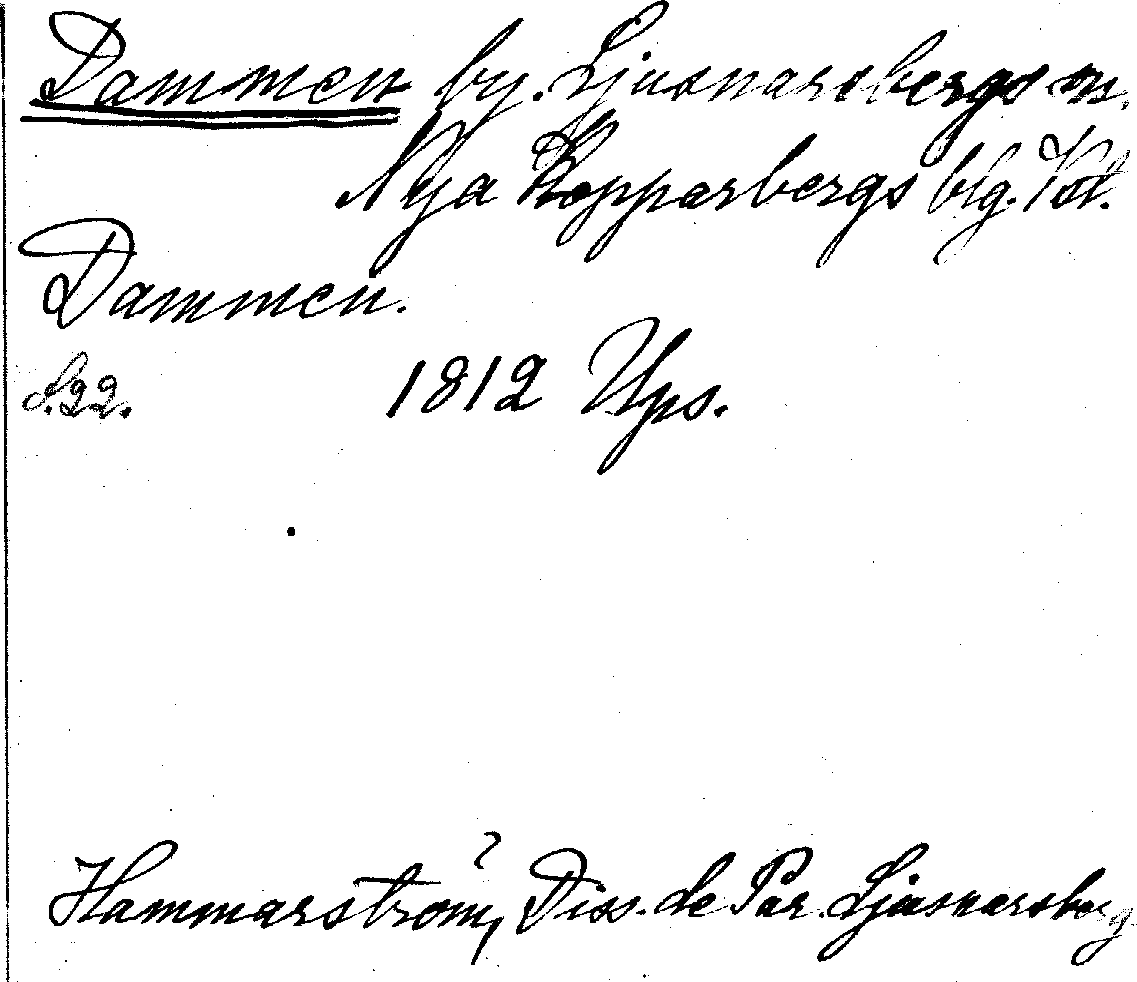 Dammen by. Ljusnarsbergs sn.
Nya Kopparbergs blg. Vstl.
Dammen.
S.22. 1812 Ups.
Hammarström, Diss. de Par. Ljusnarsberg